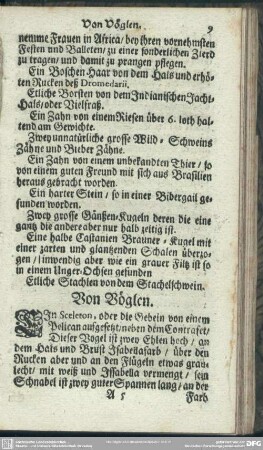 Von Vöglen. 9
nemme Frauen in Africa / bey ihren vornehmsten
Festen und Balleten / zu einer sonderlichen Zierd
zu tragen / und damit zu prangen pflegen.
Ein Boschen Haar von dem Hals und erhö-
ten Rucken deß Dromedarii.
Etliche Borsten von dem Indianischen Jacht-
Hals / oder Vielfraß.
Ein Zahn von einem Riesen über 6. loth hal-
tend am Gewichte.
Zwey unnatürliche grosse Wild-Schweins
Zähne und Bieber Zähne.
Ein Zahn von einem unbekandten Thier / so
von einem guten Freund mit sich aus Brasilien
heraus gebracht worden.
Ein harter Stein / so in einer Bibergail ge-
funden worden.
Zwey grosse Gänßen-Kugeln deren die eine
gantz die andere aber nur halb zeitig ist.
Eine halbe Castanien Brauner-Kugel mit
einer zarten und glantzenden Schalen überzo-
gen / inwendig aber wie ein grauer Filtz ist so
in einem Unger-Ochsen gefunden
Etliche Stachlen von dem Stachelschwein.
Von Vöglen.
EIn Sceleton, oder die Gebein von einem
Pelican aufgesetzt / neben dem Contrafet /
Dieser Vogel ist zwey Ehlen hoch / an
dem Hals und Brust Isabellafarb / über den
Rucken aber und an den Flügeln etwas grau-
lecht / mit weiß und Issabella vermengt / sein
Schnabel ist zwey guter Spannen lang / an der
A 5 Farb